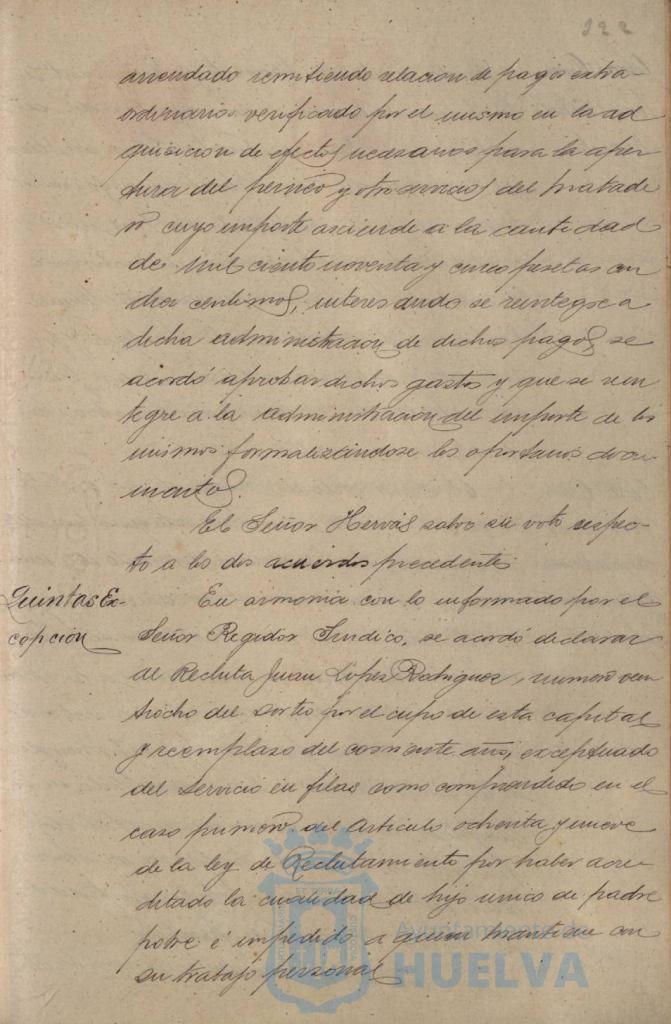 222
arrendado remitiendo relacion de pagos extra-
ordinarios verificado por el mismo en la ad
quisicion de efectos necesarios para la aper
tura del                y otros servicios del matade
ro cuyo importe asciende a la cantidad
de mil ciento noventa y cinco pesetas con
diez centimos, interesando se reintegre a
dicha administración de dichos pagos se
acordó aprobar dichos gastos y que se rein
tegre a la administración del importe de los
mismos formalizándose los oportunos docu-
mentos.
El Señor Hervás salvó su voto respec-
to a los dos acuerdos precedentes
Quintas Ex-
cepción
En armonia con lo informado por el
Señor Regidor Sindico, se acordó declarar
al Recluta Juan López Rodriguez, numero vein
tiocho del sorteo por el cupo de esta capital
y reemplazo del corriente año, exceptuado
del servicio en filas como comprendido en el
caso primero del Articulo ochenta y nueve
de la ley de Reclutamiento por haber acre-
ditado la cualidad de hijo unico de padre
pobre é impedido a quien mantiene con
su trabajo personal
Ayuntamiento de
HUELVA